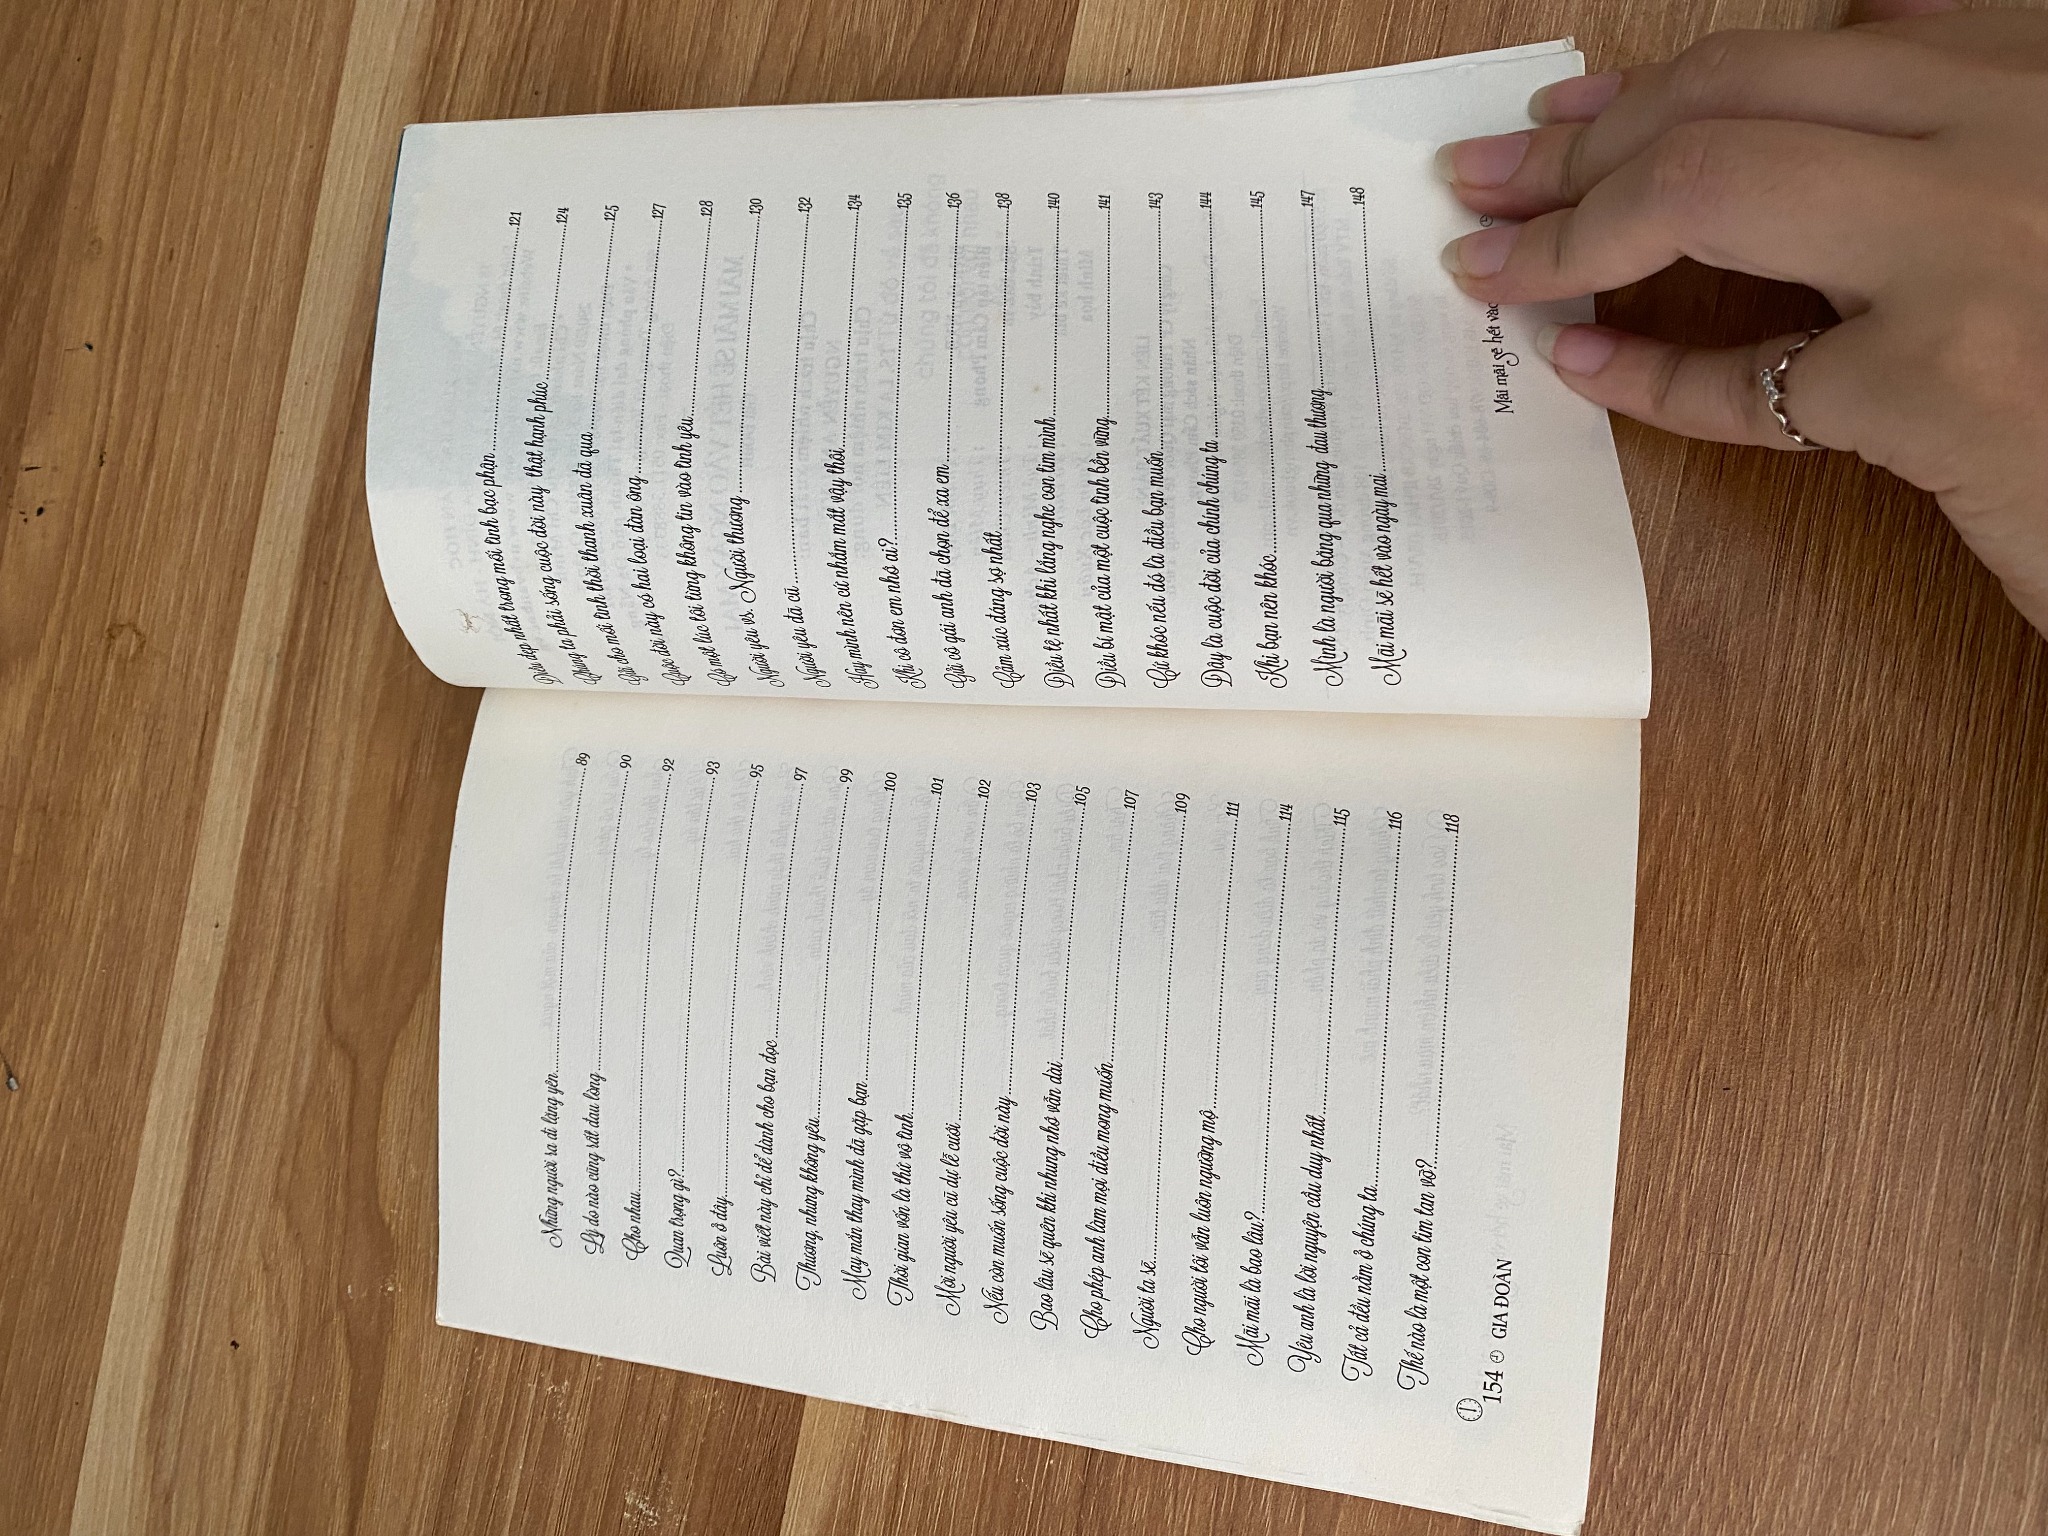 Những người ra đi lặng yên 89
Lý do nào cũng rất đau lòng 90
Cho nhau 92
Quan trọng gì? 93
Luôn ở đây 95
Bài viết này chỉ để dành cho bạn đọc 97
Thương, nhưng không yêu 99
May mắn thay mình đã gặp bạn 100
Thời gian vốn là thứ vô tình 101
Mời người yêu cũ dự lễ cưới 102
Nếu còn muốn sống cuộc đời này 103
Bao lâu sẽ quên khi nhung nhớ vẫn dài 105
Cho phép anh làm mọi điều mong muốn 107
Người ta sẽ 109
Cho người tôi vẫn luôn ngưỡng mộ 111
Mãi mãi là bao lâu? 114
Yêu anh là lời nguyện cầu duy nhất 115
Tất cả đều nằm ở chúng ta 116
Thế nào là một con tim tan vỡ? 118
154 GIA ĐOÀN
Điều đẹp nhất trong mối tình bạc phận 121
Chúng ta phải sống cuộc đời này thật hạnh phúc 124
Gửi cho mối tình thời thanh xuân đã qua 125
Cuộc đời này có hai loại đàn ông 127
Có một lúc tôi từng không tin vào tình yêu 128
Người yêu vs. Người thương 130
Người yêu đã cũ 132
Hay mình nên cứ nhắm mắt vậy thôi 134
Khi cô đơn em nhớ ai? 135
Gửi cô gái anh đã chọn để xa em 136
Cảm xúc đáng sợ nhất 138
Điều tệ nhất khi lắng nghe con tim mình 140
Điều bí mật của một cuộc tình bền vững 141
Cứ khóc nếu đó là điều bạn muốn 143
Đây là cuộc đời của chính chúng ta 144
Khi bạn nên khóc 145
Mình là người băng qua những đau thương 147
Mãi mãi sẽ hết vào ngày mai 148
Mãi mãi sẽ hết vào